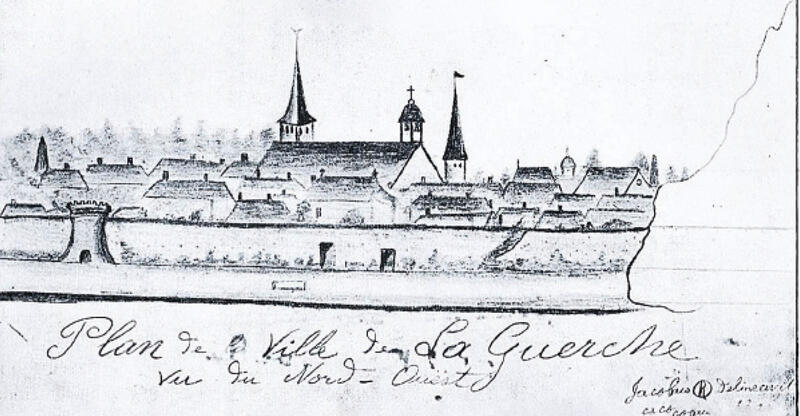 Plan de la Ville de La Guerche
Vu du Nord-Ouest
Jacobus R Delineavit